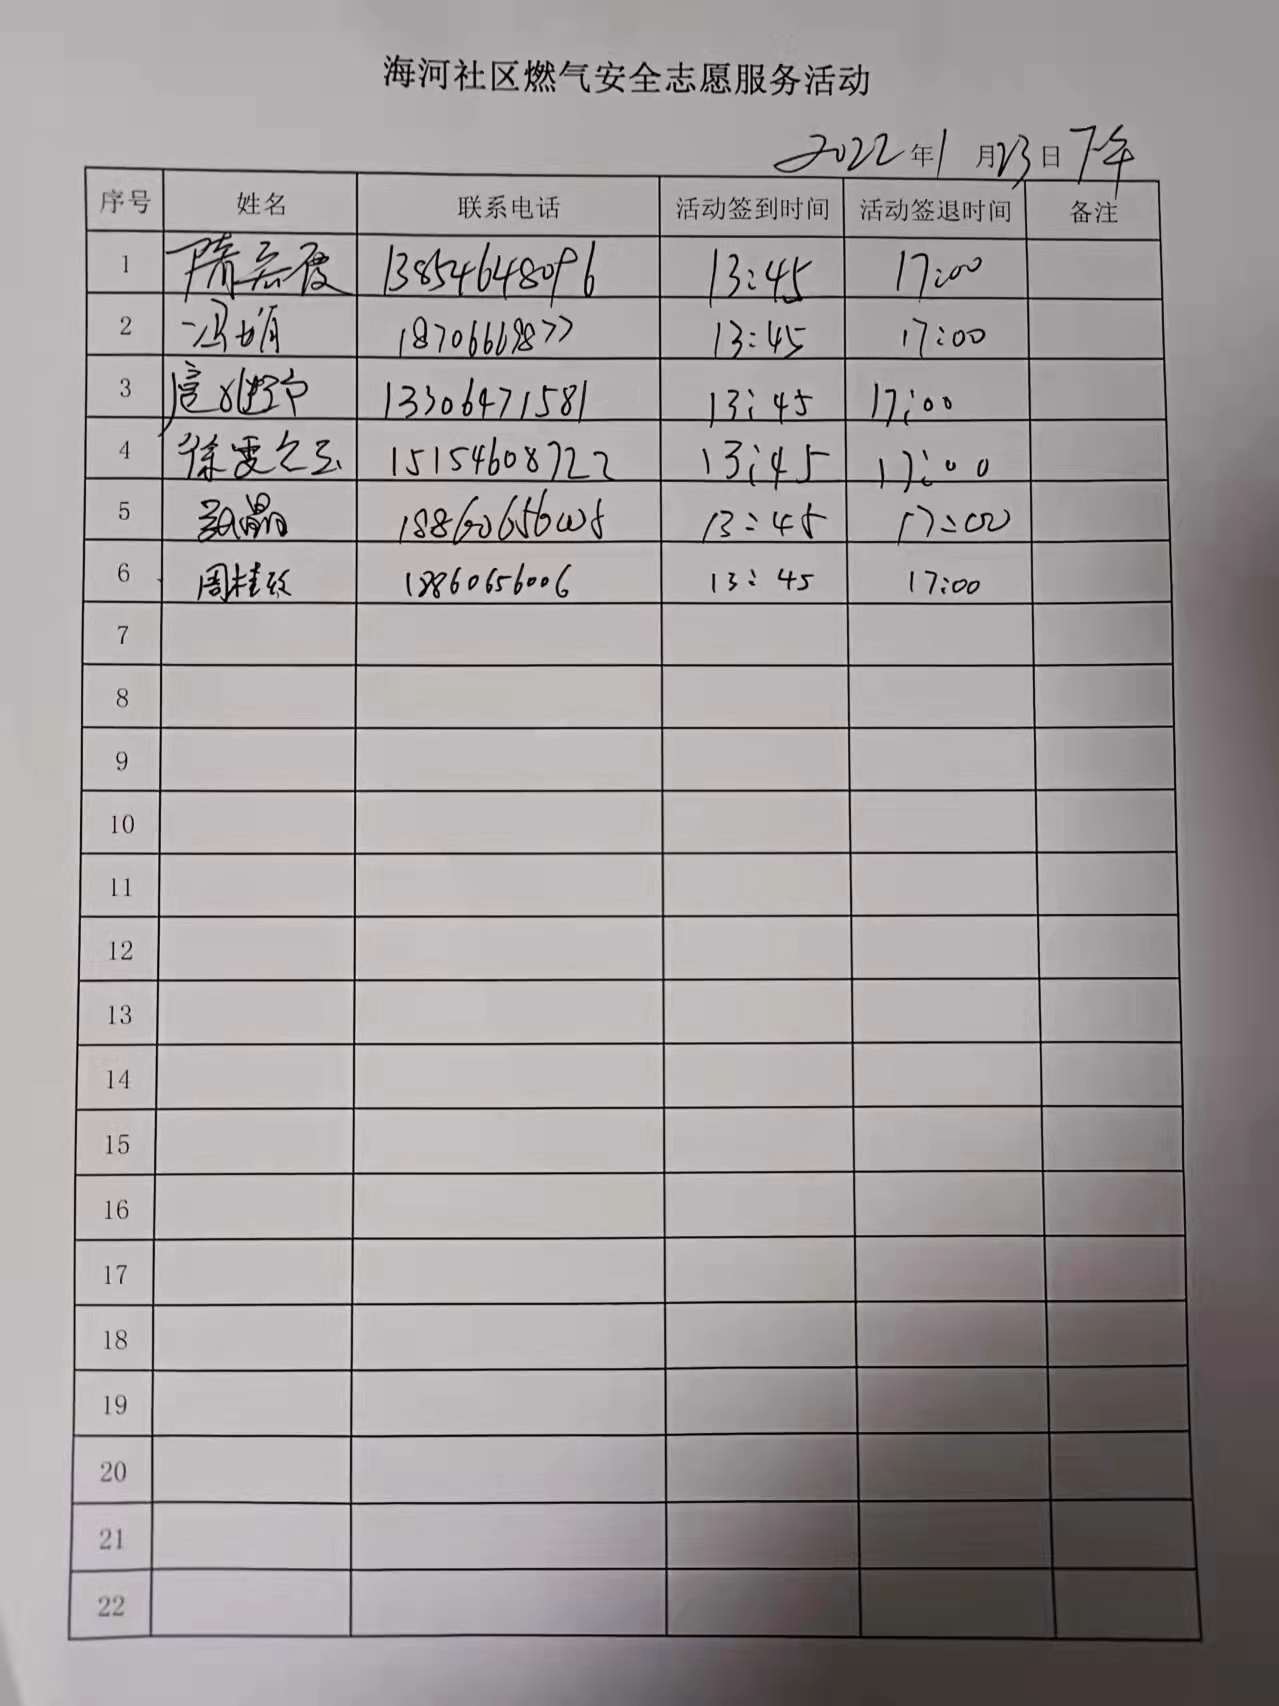 海河社区燃气安全志愿服务活动
2022年1月23日下午
序号 姓名 联系电话 活动签到时间 活动签退时间 备注
1 隋 13854648096 13:45 17:00
2 冯娟 18706668877 13:45 17:00
3 13306471581 13:45 17:00
4 徐雯 15154608722 13:45 17:00
5 晶 18860656005 13:45 17:00
6 周桂 18860656006 13:45 17:00
7
8
9
10
11
12
13
14
15
16
17
18
19
20
21
22